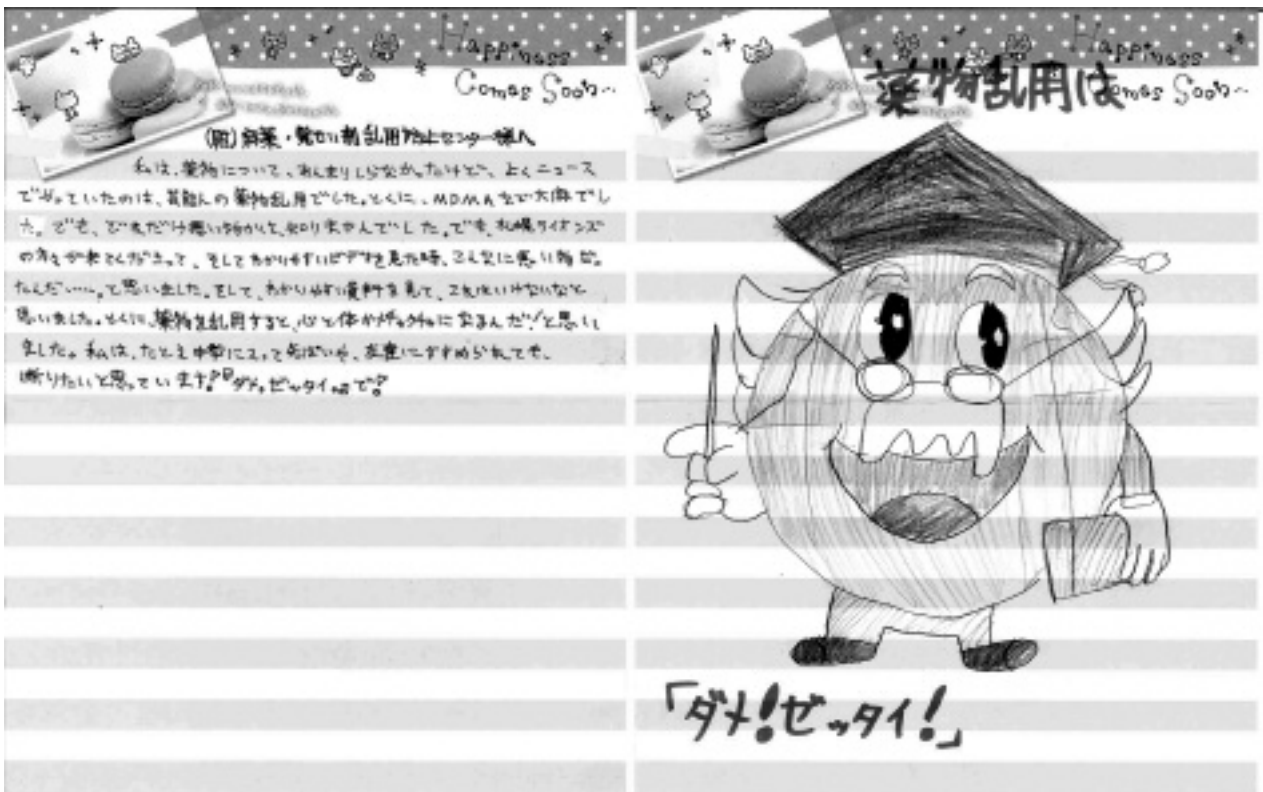 Happiness
Comes Soon...
(財)麻薬・覚せい剤乱用防止センター様へ
私は、薬物について、あんまりしらなかったけど、よくニュース
でやっていたのは、芸能人の薬物乱用でした。とくに、MDMAなど大麻でし
た。でも、どれだけ悪い物かって、知りませんでした。でも、札幌ライオンズ
の方々が来てくださって、そしてわかりやすいビデオを見た時、こんなに悪い物だ
たんだ……。と思いました。そして、わかりやすい資料を見て、これはいけないなと
思いました。とくに、薬物を乱用すると、心と体がメチャクチャになるんだ!と思い
ました。私は、たとえ中学に入って先ぱいや、友達にすすめられても、
断りたいと思っています!『ダメ。ゼッタイ。』で!
Happiness
Comes Soon...
薬物乱用は
「ダメ!ゼッタイ!」